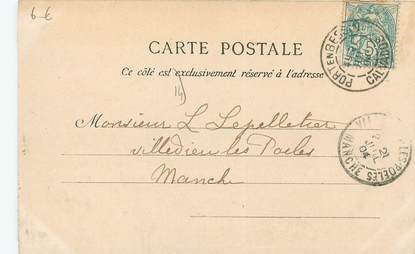 6-€
CARTE POSTALE
Ce côté est exclusivement réservé à l'adresse
PORT EN BESSIN
CALVADOS
5
14
Monsieur L Lepelletier
villedieu les Poeles
Manche
LES-POELES
MANCHE
21
04